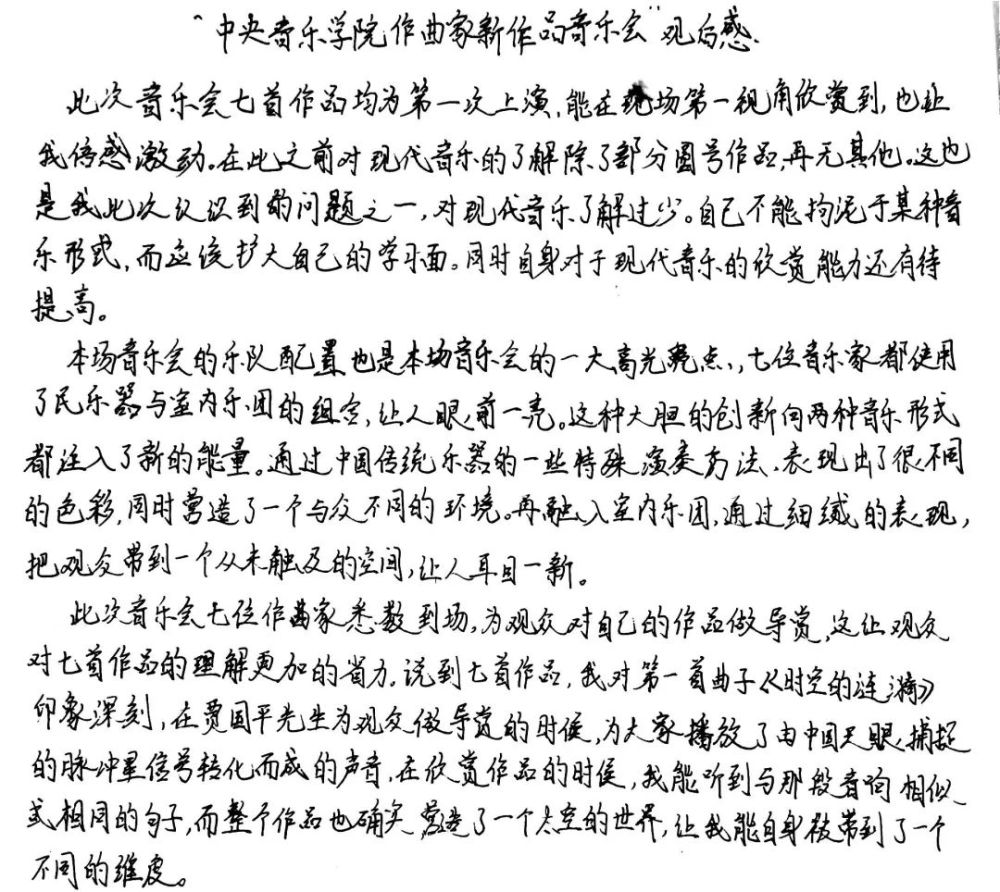 “中央音乐学院作曲家新作品音乐会”观后感.
此次音乐会七首作品均为第一次上演,能在现场第一视角欣赏到,也让
我倍感激动。在此之前对现代音乐的了解除了部分圆号作品,再无其他。这也
是我此次认识到的问题之一,对现代音乐了解过少。自己不能拘泥于某种音
乐形式,而应该扩大自己的学习面。同时自身对于现代音乐的欣赏能力还有待
提高。
本场音乐会的乐队配置也是本场音乐会的一大高光亮点,七位音乐家都使用
了民乐器与室内乐团的组合,让人眼前一亮。这种大胆的创新向两种音乐形式
都注入了新的能量。通过中国传统乐器的一些特殊演奏方法、表现出了很不同
的色彩,同时营造了一个与众不同的环境。再融入室内乐团,通过细缄的表现,
把观众带到一个从未触及的空间,让人耳目一新。
此次音乐会七位作曲家悉数到场,为观众对自己的作品做导赏,这让观众
对七首作品的理解更加的省力。说到七首作品,我对第一首曲子《时空的涟漪》
印象深刻,在贾国平先生为观众做导赏的时候,为大家播放了由中国天眼捕捉
的脉冲星信号转化而成的声音,在欣赏作品的时候,我能听到与那段音响相似
或相同的句子,而整个作品也确实营造了一个太空的世界,让我能自身被带到了一个
不同的维度。